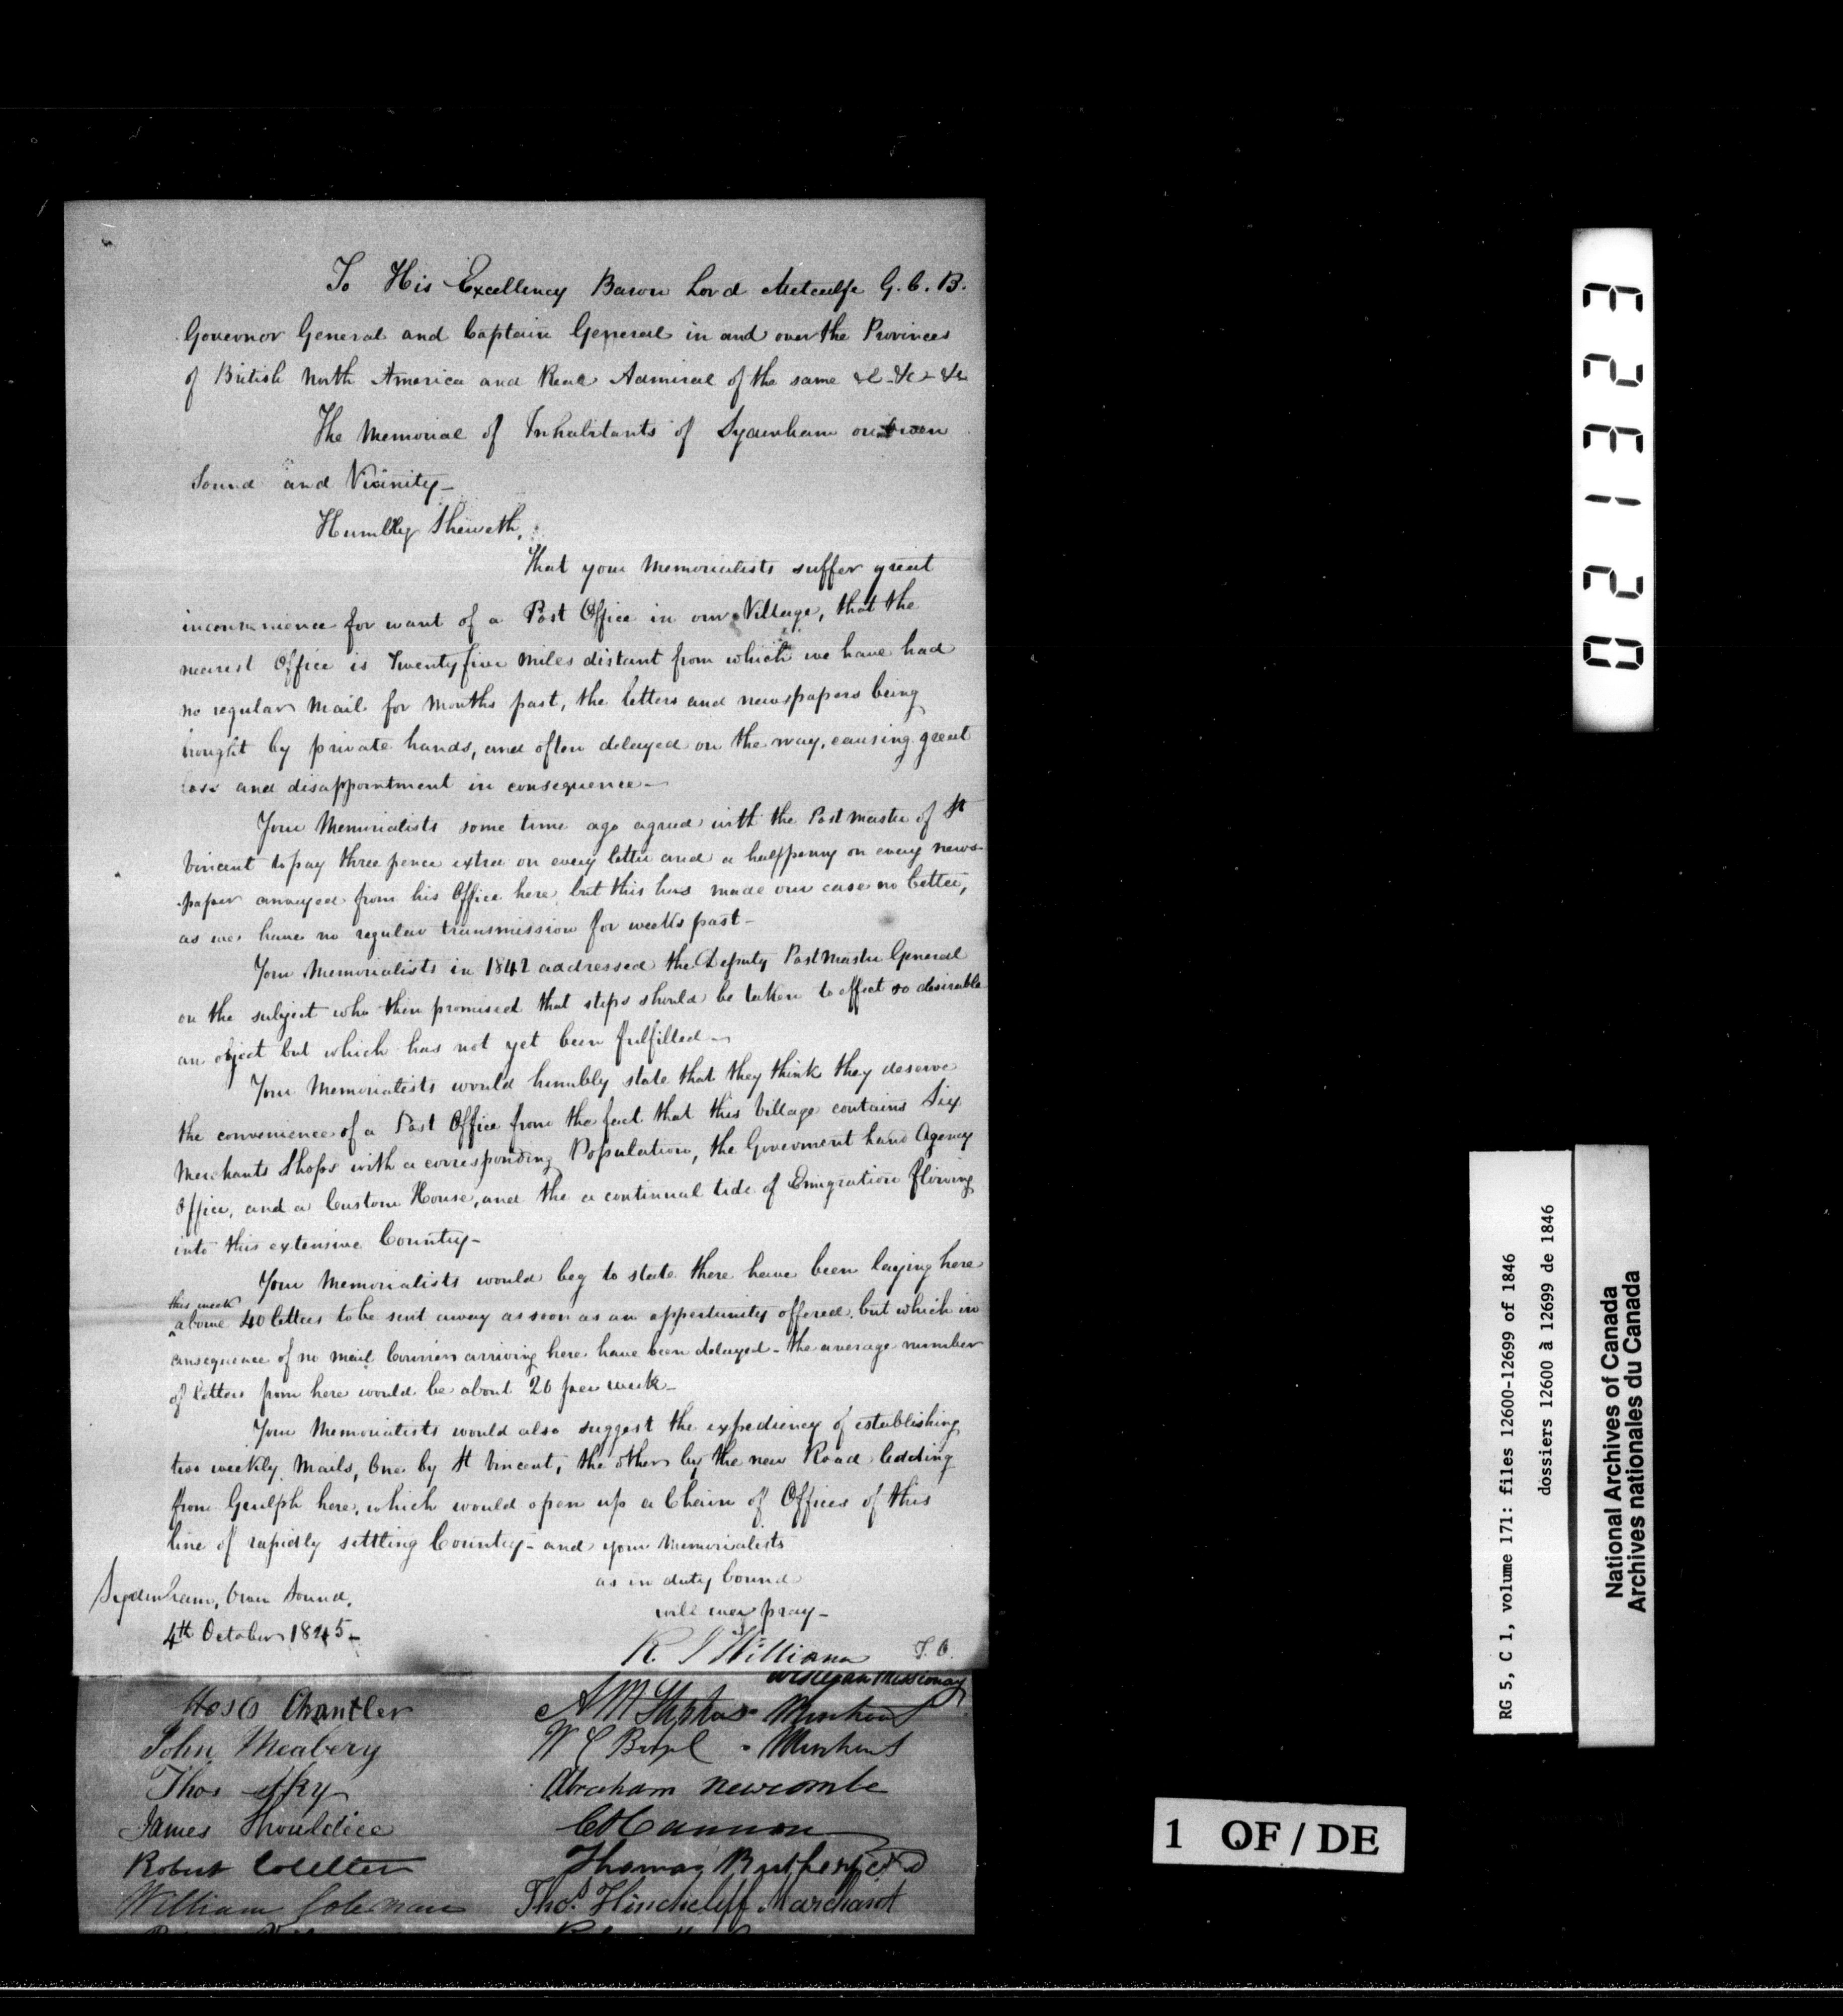 To His Excellency Baron Lord Metcalfe G. C. B.
Governor General and Captain General in and over the Provinces
of British North America and Real Admiral of the same &c - &c - &c
The Memorial of Inhabitants of Sydenham on Owen
Sound and Vicinity -
Humbly Sheweth,
That your Memorialists suffer great
inconvenience for want of a Post Office in our Village, that the
nearest Office is Twenty five miles distant from which we have had
no regular Mail for Months past, the letters and newspapers being
brought by private hands, and often delayed on the way, causing great
loss and disappointment in consequence -
Your Memorialists some time ago agreed with the Post Master of St
Vincent to pay three pence extra on every letter and a halfpenny on every news-
paper conveyed from his Office here, but this has made our case no better,
as we have no regular transmission for weeks past -
Your Memorialists in 1842 addressed the Deputy Post Master General
on the subject who then promised that steps should be taken to effect so desirable
an object but which has not yet been fulfilled -
Your Memorialists would humbly state that they think they deserve
the convenience of a Post Office from the fact that this Village contains Six
Merchants Shops with a corresponding Population, the Goverment Land Agency
Office, and a Custom House, and the a continual tide of Emigration flowing
into this extensive Country -
Your Memorialists would beg to state there have been laying here
this week
above 40 letters to be sent away as soon as an oppertunity offered, but which in
consequence of no mail Courier arriving here have been delayed - the average number
of letters from here would be about 20 per week -
Your Memorialists would also suggest the expediency of establishing
two weekly Mails, One by St Vincent, the other by the new Road leading
from Guelph here, which would open up a Chain of Offices of this
line of rapidly settling Country - and your Memorialists
as in duty bound
will ever pray -
Sydenham, Owen Sound,
4th October 1845 -
R. J. Williams
Wesleyan Missionary
Moses Chantler
Merchant
John Meabery
W C Merchant
Thos
Abraham Newcombe
James Shouldice
Cannon
Robert
Thomas Rutherford
William Coleman
Thos. Hinchcliff Marchant
0 2 1 3 2 3
RG 5, C 1, volume 171: files 12600-12699 of 1846
dossiers 12600 à 12699 de 1846
National Archives of Canada
Archives nationales du Canada
1 OF / DE